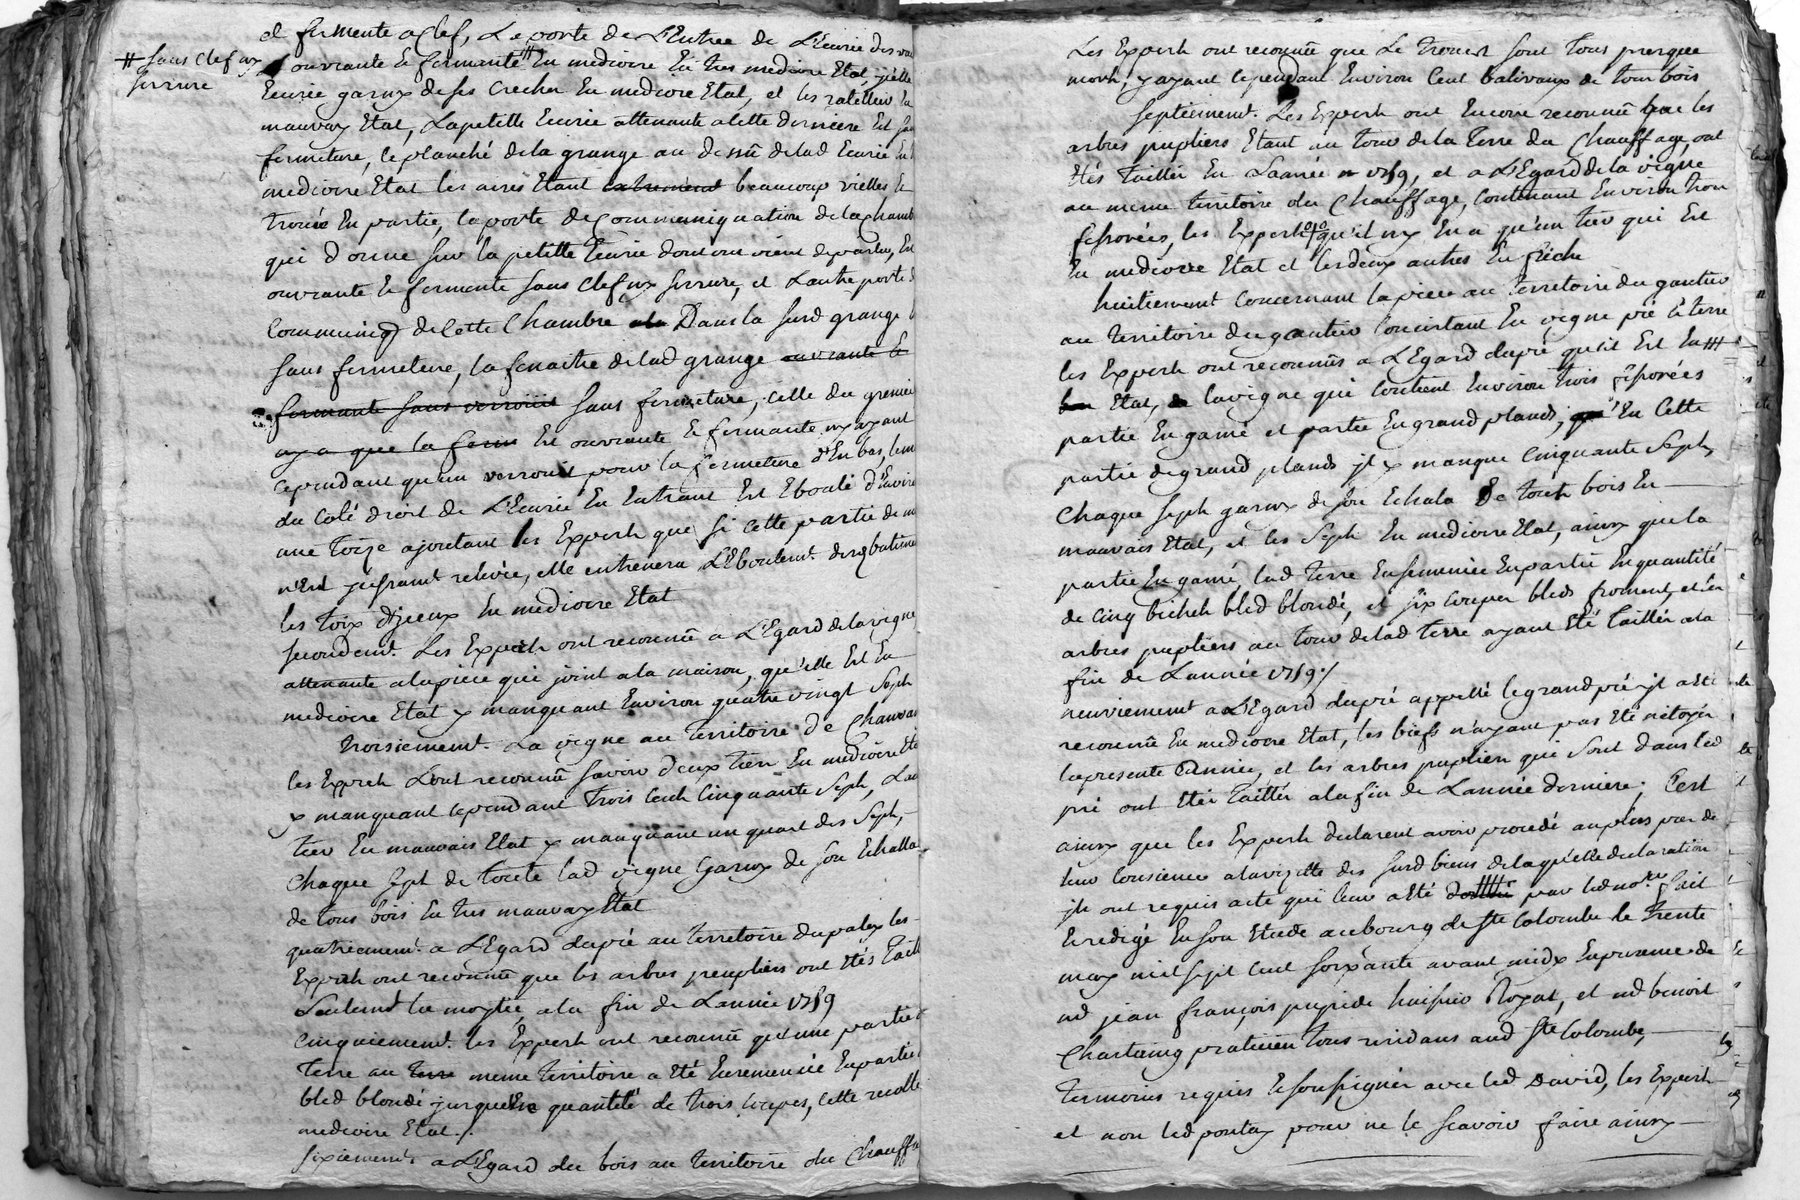 et fermente a clef, La porte de L'Entrée de L'Ecurie des
# sans clef ny
serrure
ouvrante & fermante # En mediocre En tres mediocre Etat
Ecurie garny de ses creches En mediocre Etat, et les rateliers En
mauvay Etat, La petitte Ecurie attenante a cette derniere Est sans
fermeture, le planché de la grange au dessû de lad Ecurie En
mediocre Etat les aires Etant extremem̃t beaucoup vielles, &
trouée En partie, la porte de Communiquation de la chamb
qui donne sur la petitte Ecurie dont on vient de parler, Est
ouvrante & fermente sans clef ny serrure, et L'autre porte de
communicaõn de Cette Chambre Dans la susd grange
sans fermeture, la fenaitre de lad grange ouvrante &
fermante sans verrouil sans fermeture, celle du grenier
ny a que la ferm Est ouvrante & fermante ny ayant
cependant qu'un verrouil pour la fermeture d'En bas, le mur
du Coté droit de L'Ecurie En Entrant Est Eboulé d'Environ
une toize ajoutant les Experts que si cette partie de mur
n'Est relevée, elle entrenera L'Eboulem̃t des batimen
les toix d'Jceux En mediocre Etat
secondem̃t Les Experts ont reconnû a L'Egard de la vigne
attenante a la pièce qui joint a la maison, qu'elle Est En
mediocre Etat y manquant Environ quatre vingt Seph
troisiemement La vigne au territoire de Chauvas
les Experts L'ont reconnû savoir deux tiers En mediocre Eta
y manquant cependant trois cent cinquante Seph, L'au
tier En mauvais Etat y manquant un quart des Seph,
Chaque Seph de toute lad vigne garny de son Echalla
de tous bois En tres mauvay Etat
quatriemem̃t a L'Egard du pré au territoire du palay les
Experts ont reconnû que les arbres peupliers ont Etés taill
Seulem̃t la moytié, a la fin de L'année 1759
cinquiemem̃t les Experts ont reconnû qu'une partie
terre au terre meme territoire a Eté Ensemencée En partie
bled blondé jusqu'a quantité de trois coupes, cette recolte
mediocre Etat./.
sixiemem̃t a L'Egard du bois au territoire du Chauffa
Les Experts ont reconnû que Le trouer sont tous presque
morts, y ayant cependant Environ Cent balivaux de tous bois
septiemem̃t Les Experts ont Encore reconnû que les
arbres pupliers Etant au tour de la terre du Chauffage, ont
Etés taillés En L'année 1759, et a L'Egard de la vigne
au meme territoire du Chauffage, contenant Environ trois
fessorées, les Experts qu'il ny En a qu'un tier qui Est
En mediocre Etat et les deux autres En friche
huitiemement concernant la pièce au territoire du gautier
au territoire du gautier consistant En vigne pré & terre
les Experts ont reconnûs a L'Egard du pré qu'il Est En #
bon Etat, la vigne qui contient Environ trois fessorées
partie En gamé et partie En grand plands, qu' En Cette
partie de grand plands jl y manque cinquante Seph,
Chaque Seph garny de son Echala de tout bois En
mauvais Etat, et les Seph En mediocre Etat, ainsy que la
partie En gamé, lad terre Ensemencée En partie En quantité
de cinq bichets bled blondé, et six coupes bleds froment, et les
arbres pupliers au tour de lad terre ayant Eté taillés a la
fin de L'année 1759./
neuviemement a L'Egard du pré appellé le grand pré jl a Eté
reconnû En mediocre Etat, les biefs n'ayant pas Eté netoyés
la presente Année, et les arbres puplier qui sont dans led
pré ont Etés taillés a la fin de L'année derniere; C'est
ainsy que les Experts declarent avoir procedé au plus près de
leur Consience a la visitte des susd biens de laquelle declaration
jls ont requis acte qui leur a Eté donné par led no.re fait
& redigé En son Etude au bourg de Ste Colombe le trente
may mil sept cent soixante avant midy En presence de
md jean françois pupi de huissier Royat, et md benoit
Charting praticien tous residans aud Ste Colombe,
temoins requis & soussignés avec led David, les Experts
et non led pontay pour ne le scavoir faire ainsy